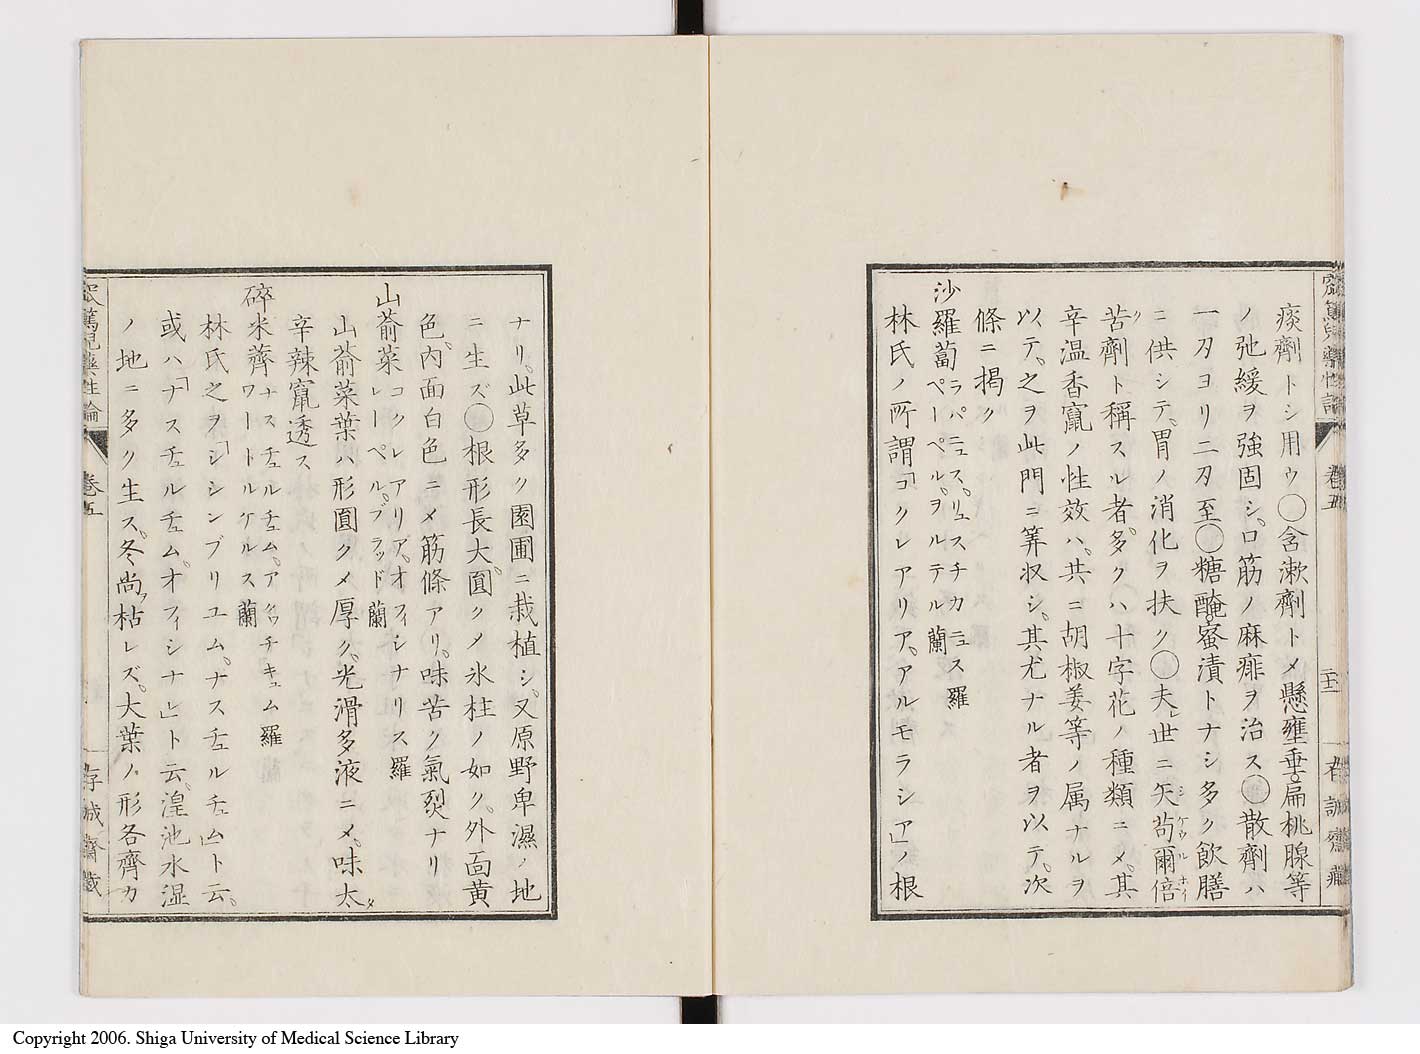 痰劑トシ用ウ〇含漱劑トメ懸壅垂。扁桃腺等
ノ弛緩ヲ強固シ。口筋ノ麻痺ヲ治ス〇散劑ハ
一刃ヨリ二刃至〇糖醃。蜜漬トナシ多ク飲膳
ニ供シテ。胃ノ消化ヲ扶ク〇夫レ世ニ矢苟爾倍
苦劑ト稱スル者。多クハ十字花ノ種類ニメ。其
辛温香竄ノ性效ハ。共ニ胡椒姜等ノ属ナルヲ
以テ。之ヲ此門ニ筭収シ。其尤ナル者ヲ以テ。次
條ニ掲ク
沙羅蔔 ラパニュス。リュスチカニュス 羅
ペーペル。ヲルテル 蘭
林氏ノ所謂「コクレアリア。アルモラシア」ノ根
卷五
ナリ。此草多ク園圃ニ栽植シ。又原野卑濕ノ地
ニ生ズ〇根形長大。圓クメ氷柱ノ如ク。外面黄
色。内面白色ニメ筋條アリ。味苦ク氣烈ナリ
山萮菜 コクレアリア。オフィシナリス 羅
レーペル。ブラッド 蘭
山萮菜葉ハ形圓クメ厚ク。光滑多液ニメ。味太タ
辛辣竄透ス
碎米薺 ナスチュルチュム。アクワチキュム 羅
ワートルケルス 蘭
林氏之ヲ「シシンブリユム。ナスチュルチュム」ト云。
或ハ「ナスチュルチュム。オフィシナレ」ト云。湟池水湿
ノ地ニ多ク生ス。冬尚ヲ枯レズ。大葉ノ形各齊カ
窊篤兒藥性論
卷五
存誠齋藏